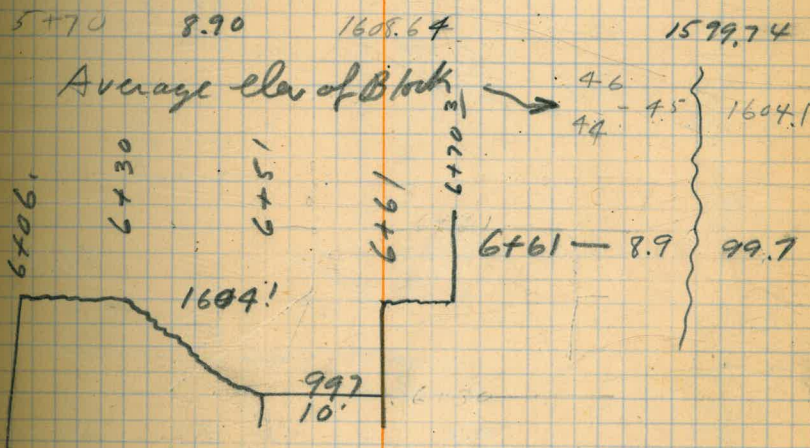 5+70 8.90 1608.64 1599.74
Average elev of Block
46
44 - 45 1604.1
6+06 6+30 6+51 6+61 6+70
6+61 — 8.9 99.7
1604!
997
10'
6+30